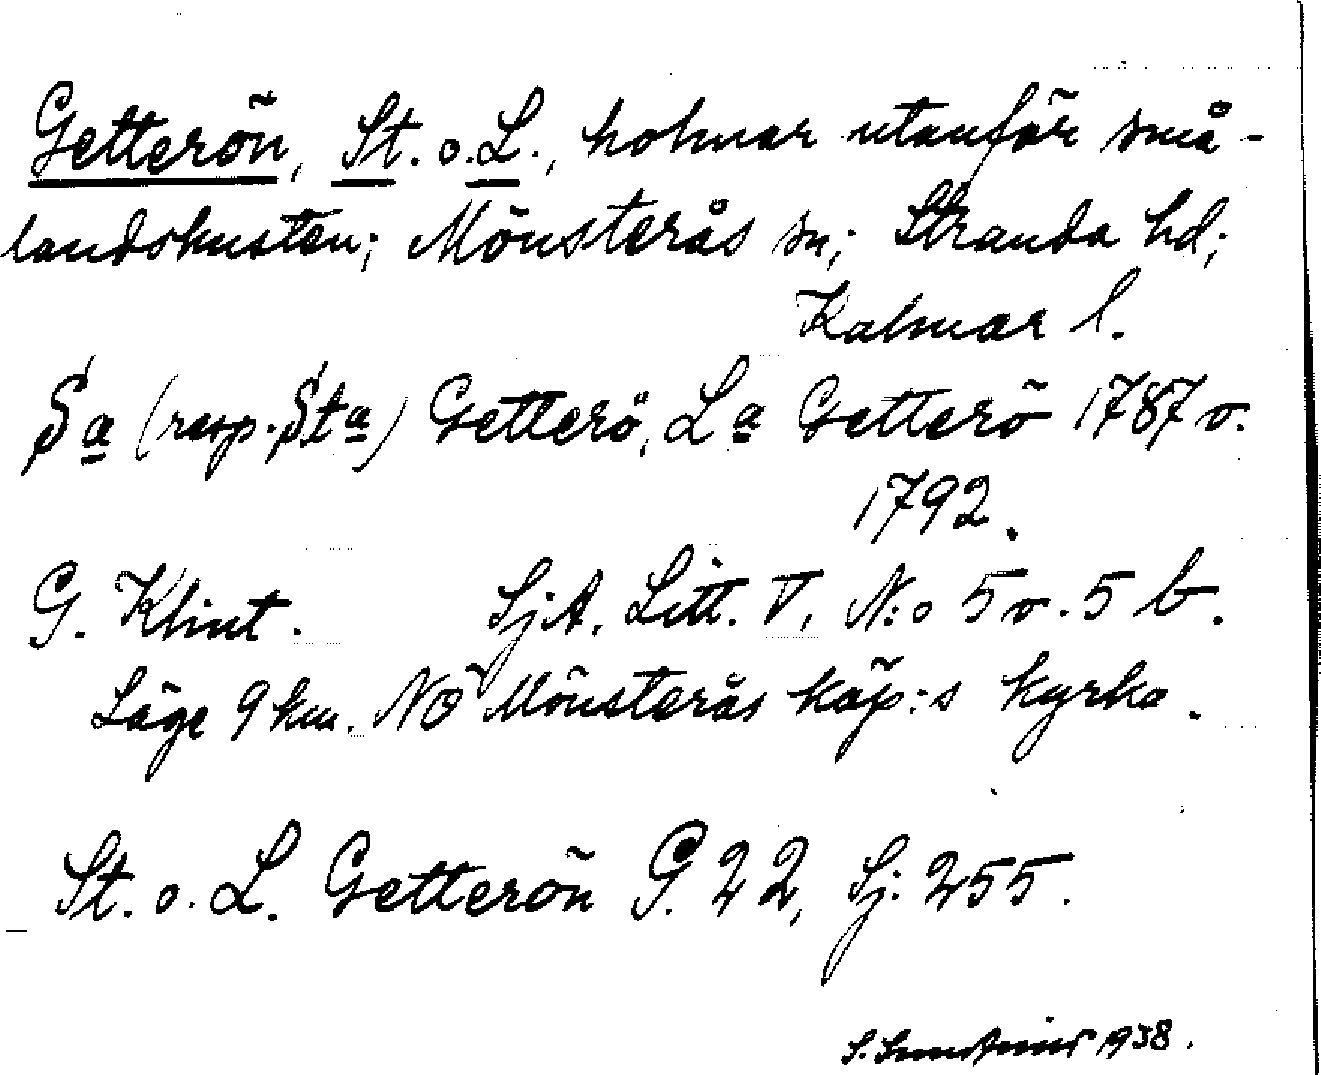 Getterön, St. o. L., holmar utanför små-
landskusten; Mönsterås sn; Stranda hd;
Kalmar l.
Sa (resp. Sta) Getterö, La Getterö 1787 o.
1792.
G. Klint. SjA. Litt. V, N:o 5 o. 5 b.
Läge 9 km. NÖ Mönsterås köp:s kyrka.
St. o. L. Getterön G. 22, Sj. 255.
S. 1938.